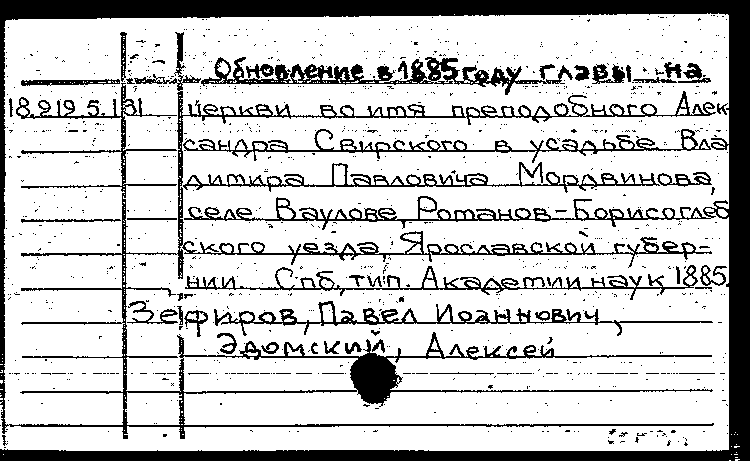 Обновление в 1885 году главы на
18.219.5.131 церкви во имя преподобного Алек-
сандра Свирского в усадьбе Вла
димира Павловича Мордвинова,
селе Ваулове, Романов-Борисоглеб
ского уезда, Ярославской губер-
нии. Спб., тип. Академии наук, 1885.
Зефиров, Павел Иоаннович,
Эдомский, Алексей